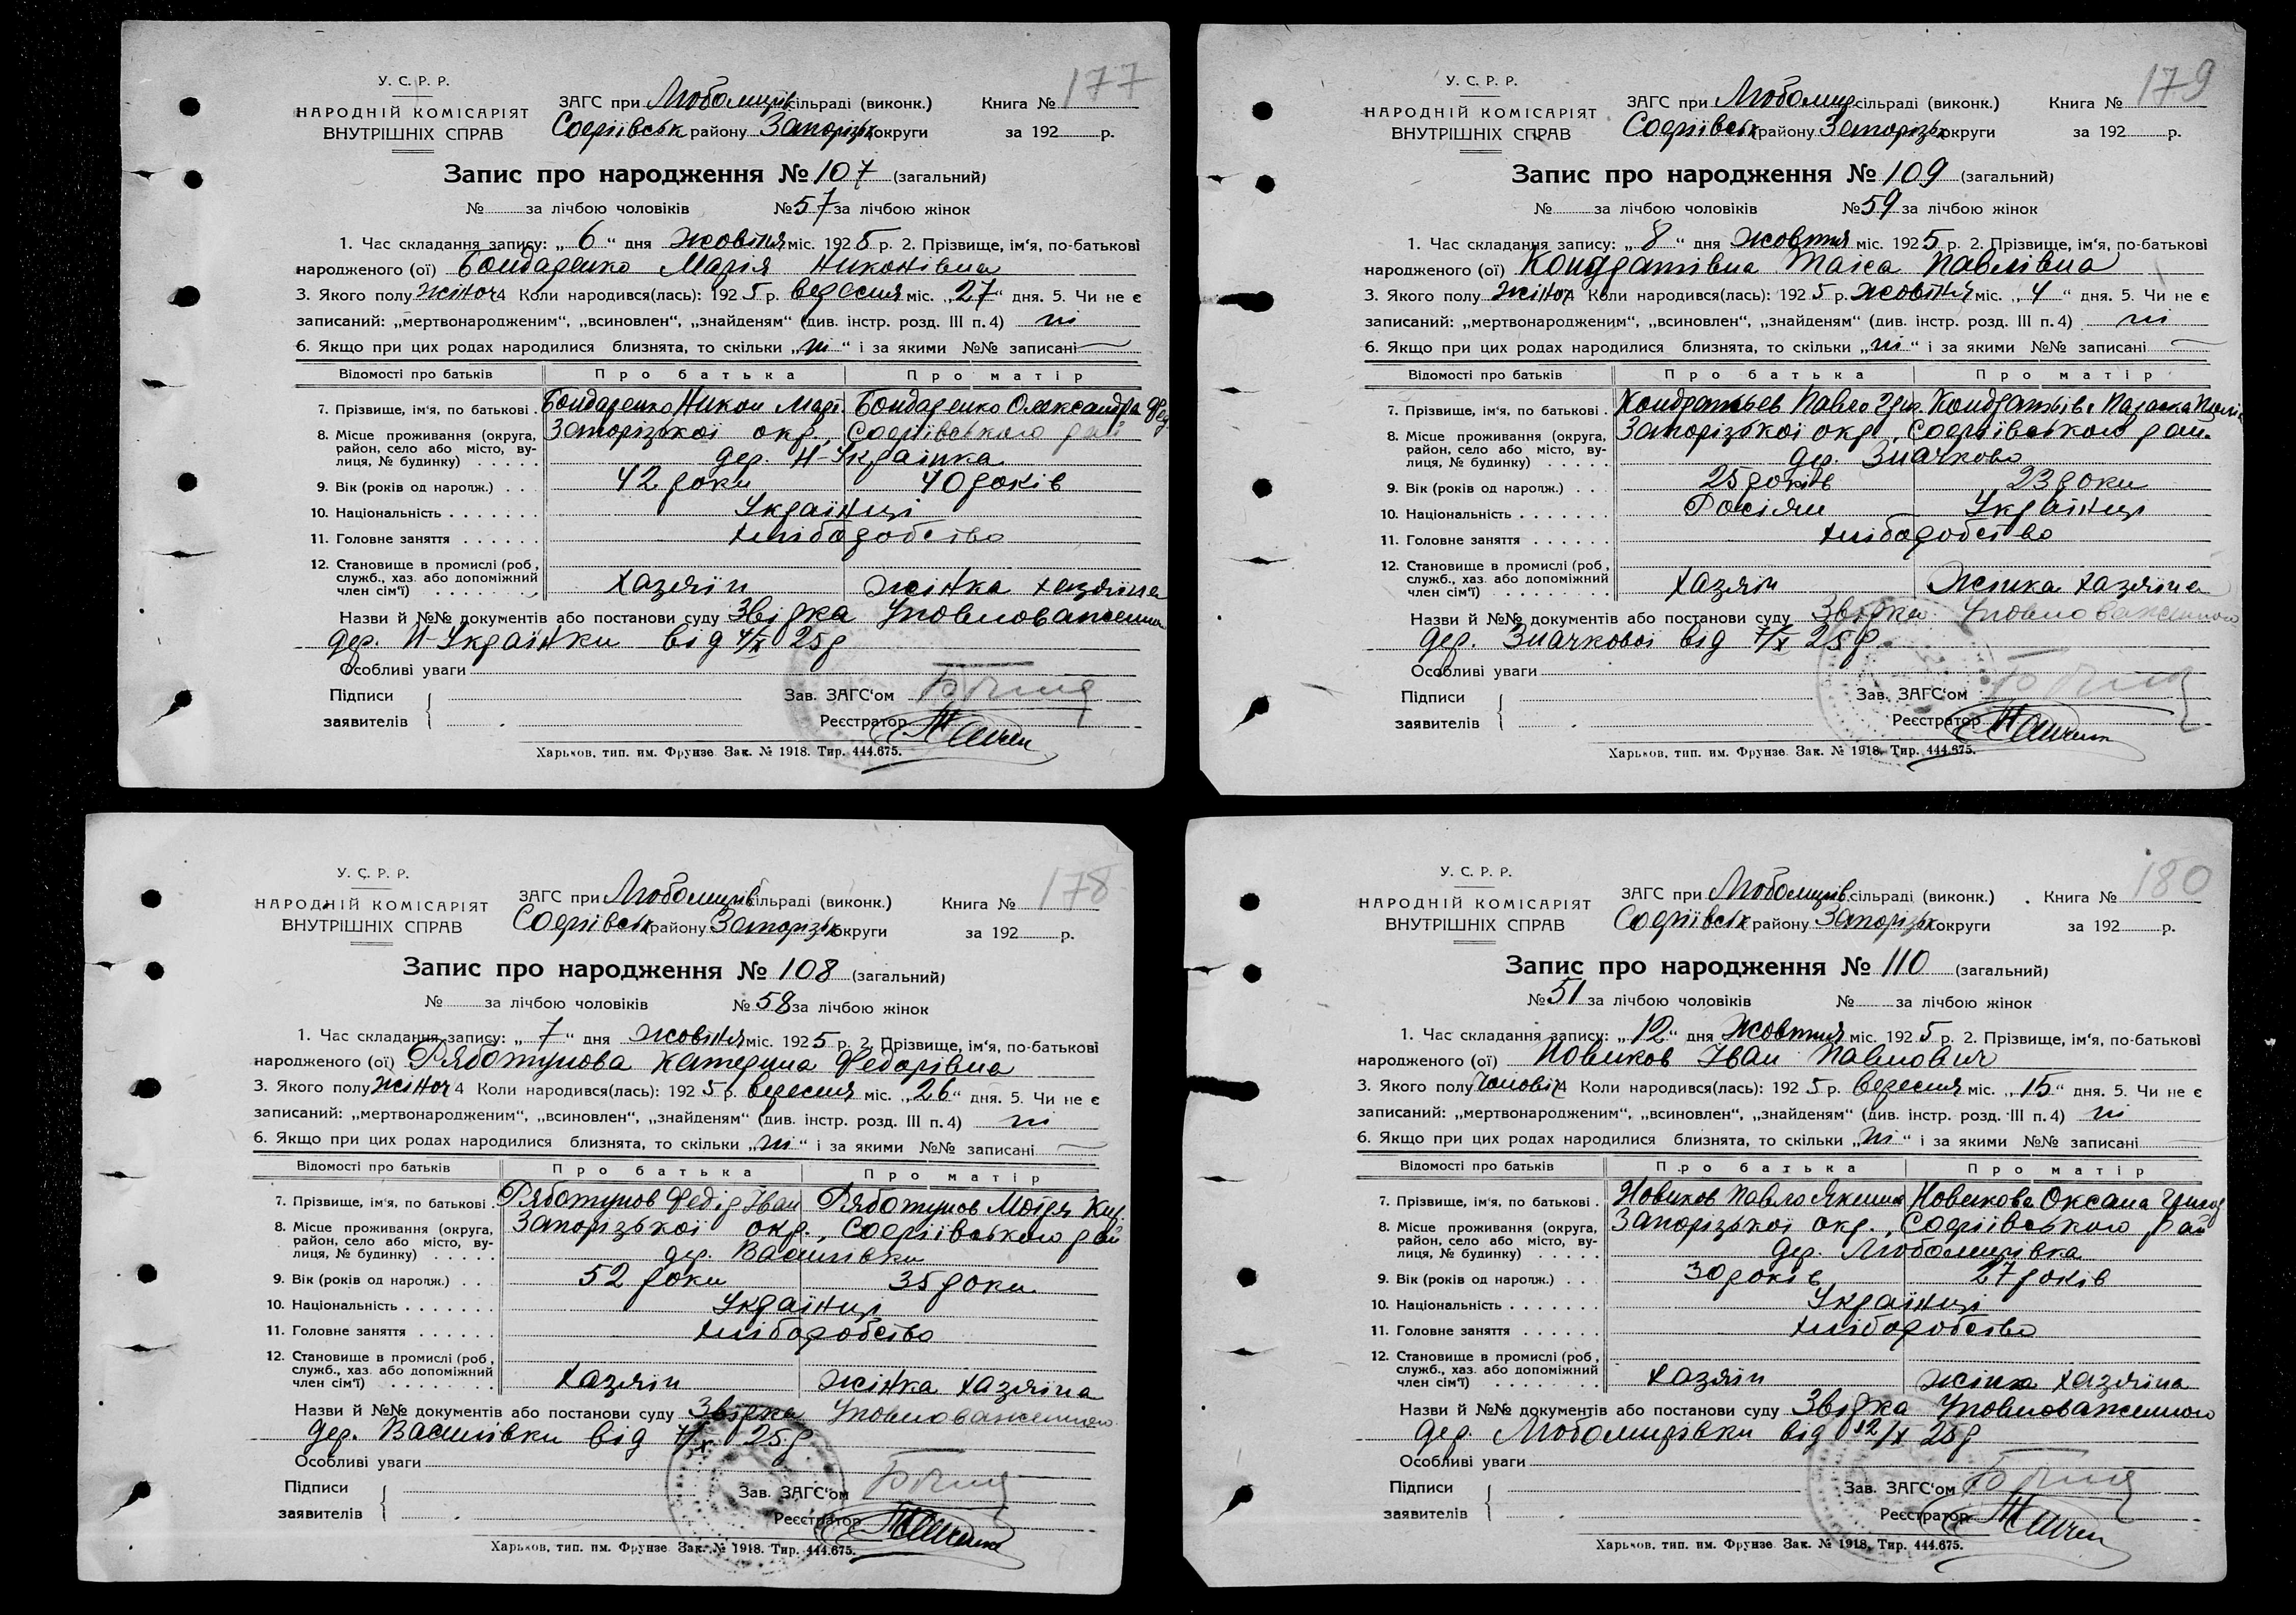 177
У. С. Р. Р.
НАРОДНІЙ КОМІСАРІЯТ
ВНУТРІШНІХ СПРАВ
ЗАГС при Любомирів сільраді (виконк.) Книга №
Софіївськ району Запорізьк округи за 192 р.
Запис про народження № 107 (загальний)
№ за лічбою чоловіків № 57 за лічбою жінок
1. Час складання запису: „ 6 “ дня жовтня міс. 1925 р. 2. Прізвище, ім‘я, по-батькові
народженого (ої) Бондаренко Марія Никонівна
3. Якого полу жіноч 4 Коли народився(лась): 1925 р. вересня міс. „27“ дня. 5. Чи не є
записаний: „мертвонародженим“, „всиновлен“, „знайденям“ (див. інстр. розд. III п. 4) ні
6. Якщо при цих родах народилися близнята, то скільки „ні“ і за якими №№ записані —
Відомості про батьків Про батька Про матір
7. Прізвище, ім‘я, по батькові Бондаренко Никон Марк Бондаренко Олександра Фед.
8. Місце проживання (округа, район, село або місто, вулиця, № будинку) Запорізької окр., Софіївського рай
дер. Н-Українка
9. Вік (років од народж.) 42 роки 40 років
10. Національність Українці
11. Головне заняття Хліборобство
12. Становище в промислі (роб., служб., хаз. або допоміжний член сім‘ї) Хазяїн Жінка хазяїна
Назви й №№ документів або постанови суду Звірка Уповноваженно
дер. Н-Українки від 4/X 25 р
Особливі уваги
Підписи
заявителів
Зав. ЗАГС‘ом
Реєстратор
Харьков, тип. им. Фрунзе Зак. № 1918. Тир. 444.675.
179
У. С. Р. Р.
НАРОДНІЙ КОМІСАРІЯТ
ВНУТРІШНІХ СПРАВ
ЗАГС при Любомир сільраді (виконк.) Книга №
Софіївськ району Запорізьк округи за 192 р.
Запис про народження № 109 (загальний)
№ за лічбою чоловіків № 59 за лічбою жінок
1. Час складання запису: „ 8 “ дня жовтня міс. 1925 р. 2. Прізвище, ім‘я, по-батькові
народженого (ої) Кондратівна Таіса Павлівна
3. Якого полу жіноч 4 Коли народився(лась): 1925 р. жовтня міс. „ 4 “ дня. 5. Чи не є
записаний: „мертвонародженим“, „всиновлен“, „знайденям“ (див. інстр. розд. III п. 4) ні
6. Якщо при цих родах народилися близнята, то скільки „ні“ і за якими №№ записані —
Відомості про батьків Про батька Про матір
7. Прізвище, ім‘я, по батькові Кондратьев Павло Григ. Кондратьів. Параска
8. Місце проживання (округа, район, село або місто, вулиця, № будинку) Запорізької окр., Софіївського рай.
дер. Значково
9. Вік (років од народж.) 25 років 23 роки
10. Національність Росіяни Українці
11. Головне заняття Хліборобство
12. Становище в промислі (роб., служб., хаз. або допоміжний член сім‘ї) Хазяїн Жінка хазяїна
Назви й №№ документів або постанови суду Звірка Уповноваженного
дер. Значкової від 7/X 25 р.
Особливі уваги
Підписи
заявителів
Зав. ЗАГС‘ом
Реєстратор
Харьков, тип. им. Фрунзе Зак. № 1918. Тир. 444.675.
178
У. С. Р. Р.
НАРОДНІЙ КОМІСАРІЯТ
ВНУТРІШНІХ СПРАВ
ЗАГС при Любомирів сільраді (виконк.) Книга №
Софіївськ району Запорізьк округи за 192 р.
Запис про народження № 108 (загальний)
№ за лічбою чоловіків № 58 за лічбою жінок
1. Час складання запису: „ 7 “ дня жовтня міс. 1925 р. 2. Прізвище, ім‘я, по-батькові
народженого (ої) Ряботунова Катерина Федорівна
3. Якого полу жіноч 4 Коли народився(лась): 1925 р. вересня міс. „26“ дня. 5. Чи не є
записаний: „мертвонародженим“, „всиновлен“, „знайденям“ (див. інстр. розд. III п. 4) ні
6. Якщо при цих родах народилися близнята, то скільки „ні“ і за якими №№ записані —
Відомості про батьків Про батька Про матір
7. Прізвище, ім‘я, по батькові Ряботунов Федір Іван Ряботунов
8. Місце проживання (округа, район, село або місто, вулиця, № будинку) Запорізької окр., Софіївського рай
дер. Василівки
9. Вік (років од народж.) 52 роки 35 роки
10. Національність Українці
11. Головне заняття Хліборобство
12. Становище в промислі (роб., служб., хаз. або допоміжний член сім‘ї) Хазяїн Жінка хазяїна
Назви й №№ документів або постанови суду Звірка Уповноваженного
дер. Василівки від 7/X 25 р
Особливі уваги
Підписи
заявителів
Зав. ЗАГС‘ом
Реєстратор
Харьков, тип. им. Фрунзе Зак. № 1918. Тир. 444.675.
180
У. С. Р. Р.
НАРОДНІЙ КОМІСАРІЯТ
ВНУТРІШНІХ СПРАВ
ЗАГС при Любомирів сільраді (виконк.) Книга №
Софіївськ району Запорізьк округи за 192 р.
Запис про народження № 110 (загальний)
№ 51 за лічбою чоловіків № за лічбою жінок
1. Час складання запису: „12“ дня жовтня міс. 1925 р. 2. Прізвище, ім‘я, по-батькові
народженого (ої) Новиков Іван Павлович
3. Якого полу Чоловіч 4 Коли народився(лась): 1925 р. вересня міс. „15“ дня. 5. Чи не є
записаний: „мертвонародженим“, „всиновлен“, „знайденям“ (див. інстр. розд. III п. 4) ні
6. Якщо при цих родах народилися близнята, то скільки „ні“ і за якими №№ записані —
Відомості про батьків Про батька Про матір
7. Прізвище, ім‘я, по батькові Новиков Павло Якимов Новикова Оксана
8. Місце проживання (округа, район, село або місто, вулиця, № будинку) Запорізької окр., Софіївського рай
дер. Любомирівка
9. Вік (років од народж.) 30 років 27 років
10. Національність Українці
11. Головне заняття Хліборобство
12. Становище в промислі (роб., служб., хаз. або допоміжний член сім‘ї) Хазяїн Жінка хазяїна
Назви й №№ документів або постанови суду Звірка Уповноваженного
дер. Любомирівки від 12/X 25 р
Особливі уваги
Підписи
заявителів
Зав. ЗАГС‘ом
Реєстратор
Харьков, тип. им. Фрунзе Зак. № 1918. Тир. 444.675.